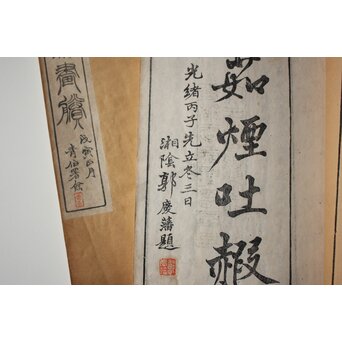 茹煙吐霞
光緒丙子先立冬三日
湘陰郭慶藩題
畫賸
戊寅正月